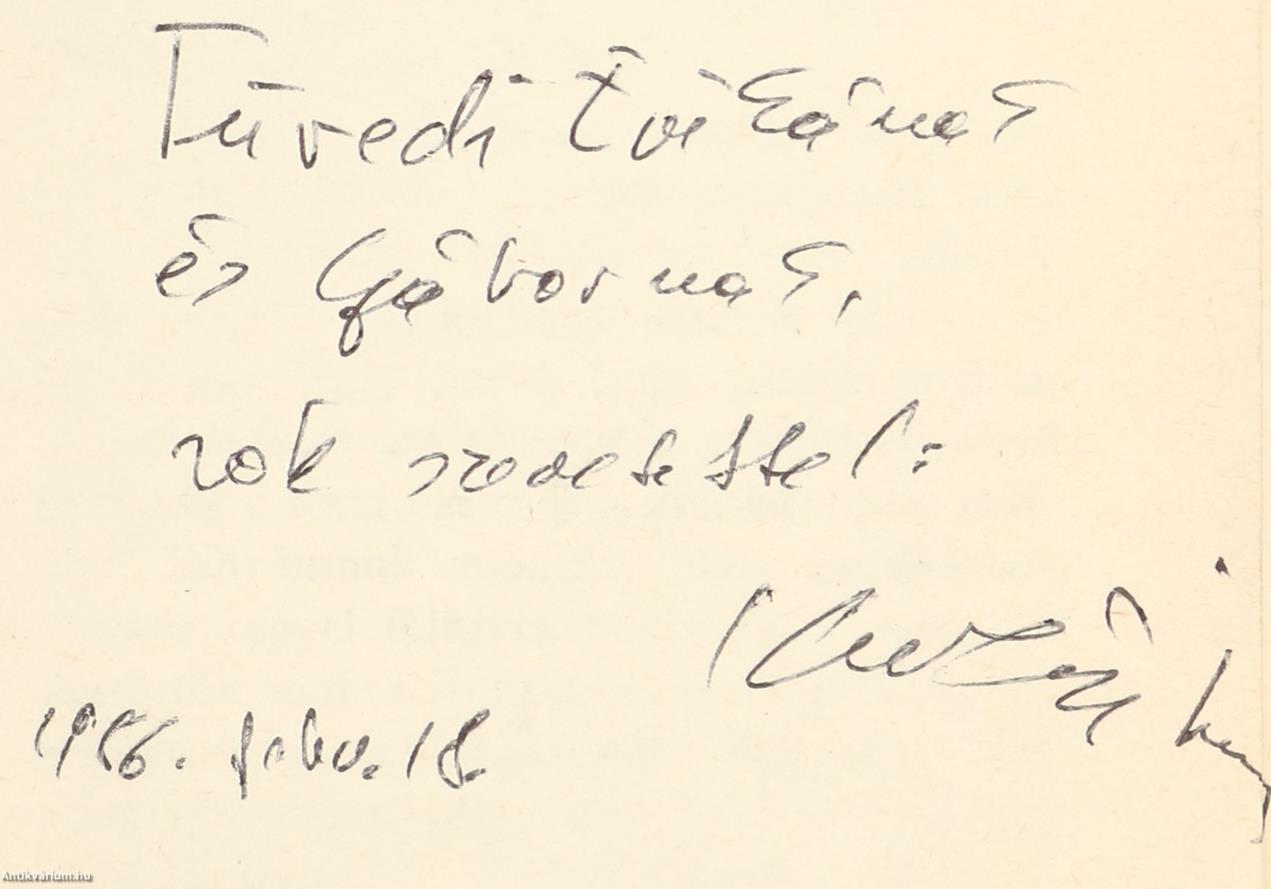 Füredi Évikének
és Gábornak,
sok szeretettel:
1986. febr. 18.
Antikvárium.hu